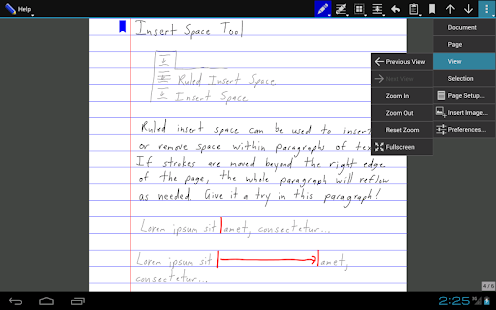 Help
Insert Space Tool
Ruled Insert Space
Insert Space
Ruled insert space can be used to insert
or remove space within paragraphs of tex
If strokes are moved beyond the right edge
of the page, the whole paragraph will reflow
as needed. Give it a try in this paragraph!
Lorem ipsum sit amet, consectetur...
Lorem ipsum sit amet,
consectetur...
Document
Page
View
Selection
Page Setup...
Insert Image...
Preferences...
Previous View
Next View
Zoom In
Zoom Out
Reset Zoom
Fullscreen
4/6
2:25